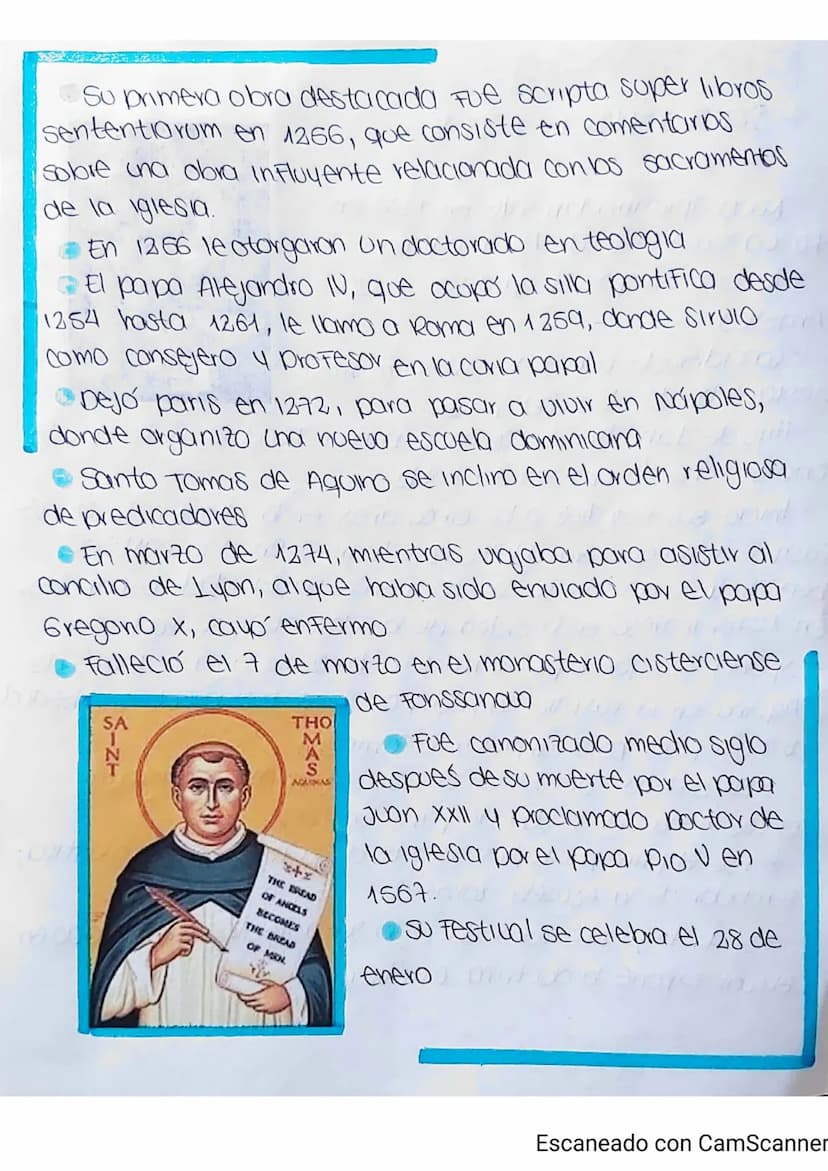 Su primera obra destacada fue scripta super libros
sententiarum en 1266, que consiste en comentarios
sobre una obra influyente relacionada con los sacramentos
de la iglesia.
En 1266 le otorgaron un doctorado en teologia
El papa Alejandro IV, que ocupó la silla pontifica desde
1254 hasta 1261, le llamo a Roma en 1259, donde sirvio
como consejero y profesor en la coria papal
Dejó paris en 1272, para pasar a vivir en Nápoles,
donde organizo una nueva escuela dominicana
Santo Tomas de Aquino se inclino en el orden religiosa
de predicadores
En marzo de 1274, mientras viajaba para asistir al
concilio de Lyon, al que habia sido enviado por el papa
Gregorio X, cayó enfermo
Falleció el 7 de marzo en el monasterio cisterciense
de Fonssanova
Fue canonizado mecho siglo
después de su muerte por el papa
Juan XXII y proclamado Doctor de
la iglesia por el papa Pio V en
1567.
Su festival se celebra el 28 de
enero
SAINT
THOMAS
AQUINAS
THE BREAD
OF ANGELS
BECOMES
THE BREAD
OF MEN.
Escaneado con CamScanner